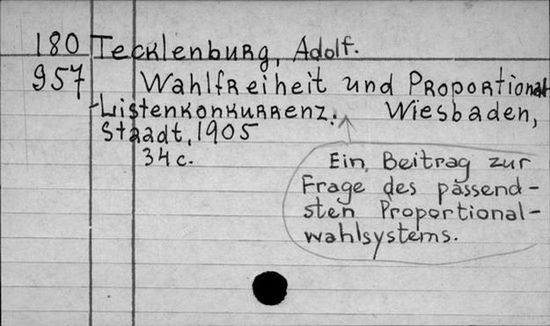 180 Tecklenburg, Adolf.
957 Wahlfreiheit und Proportional
-Listenkonkurrenz. Wiesbaden,
Staadt, 1905
34 c.
Ein Beitrag zur
Frage des passend-
sten Proportional-
wahlsystems.